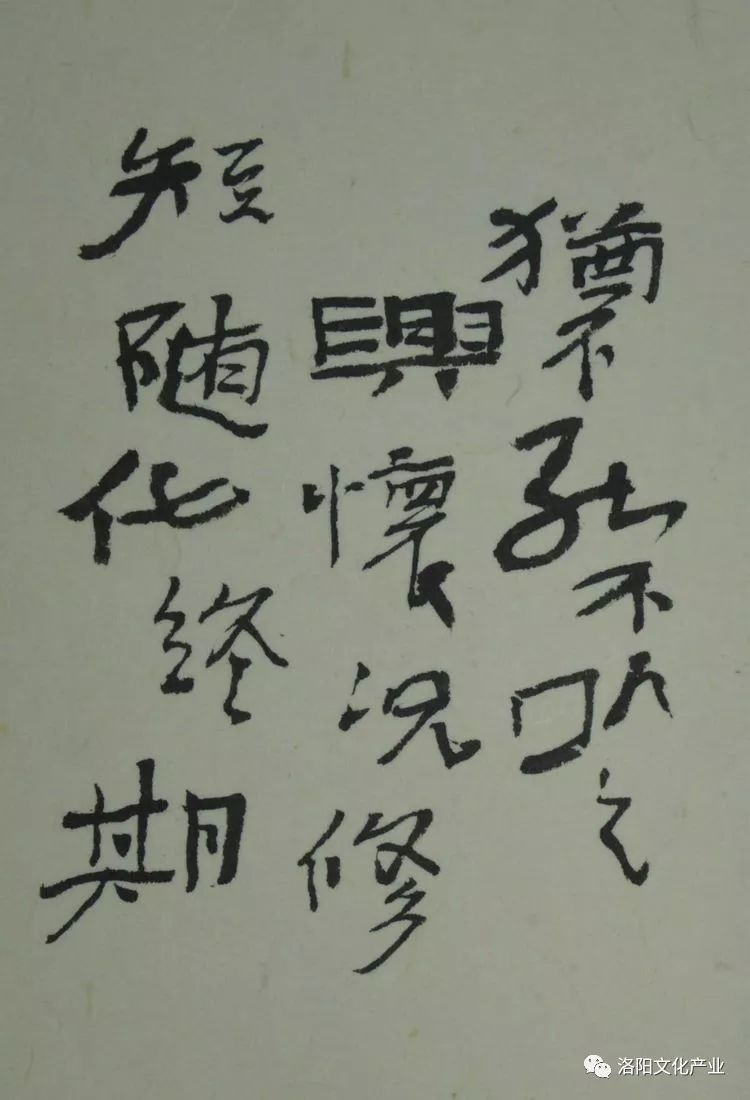 猶不能不以之
興懷况修
短随化終期
洛阳文化产业